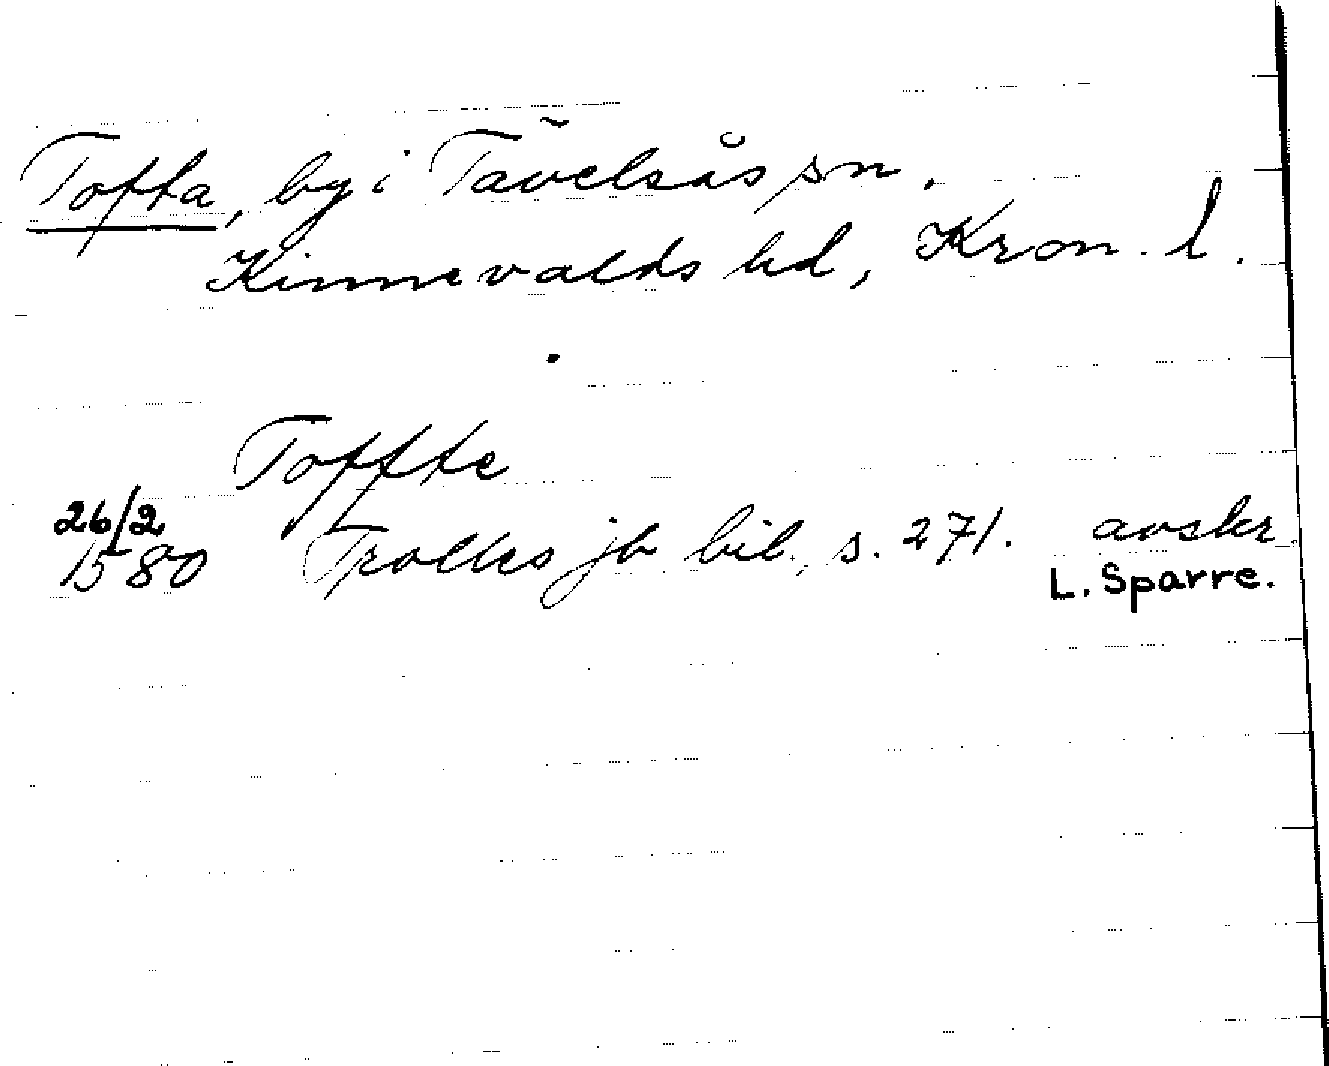 Tofta, by i Tävelsås sn,
Kinnevalds hd, Kron. l.
Toffte
26/2
1580 Trolles jb bil., s. 271. avskr.
L. Sparre.